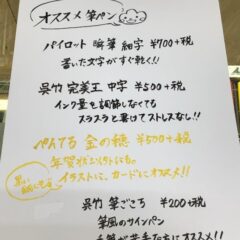 オススメ筆ペン
パイロット 瞬筆 細字 ¥700+税
書いた文字がすぐ乾く!!
呉竹 完美王 中字 ¥500+税
インク量を調節しなくても
スラスラと書けてストレスなし!!
ぺんてる 金の穂 ¥500+税
年賀状シメイトにも。
イラストに、カードにオススメ!!
黒い
紙にも◎
呉竹 筆ごこち ¥200+税
筆風のサインペン
毛筆が苦手な方にオススメ!!